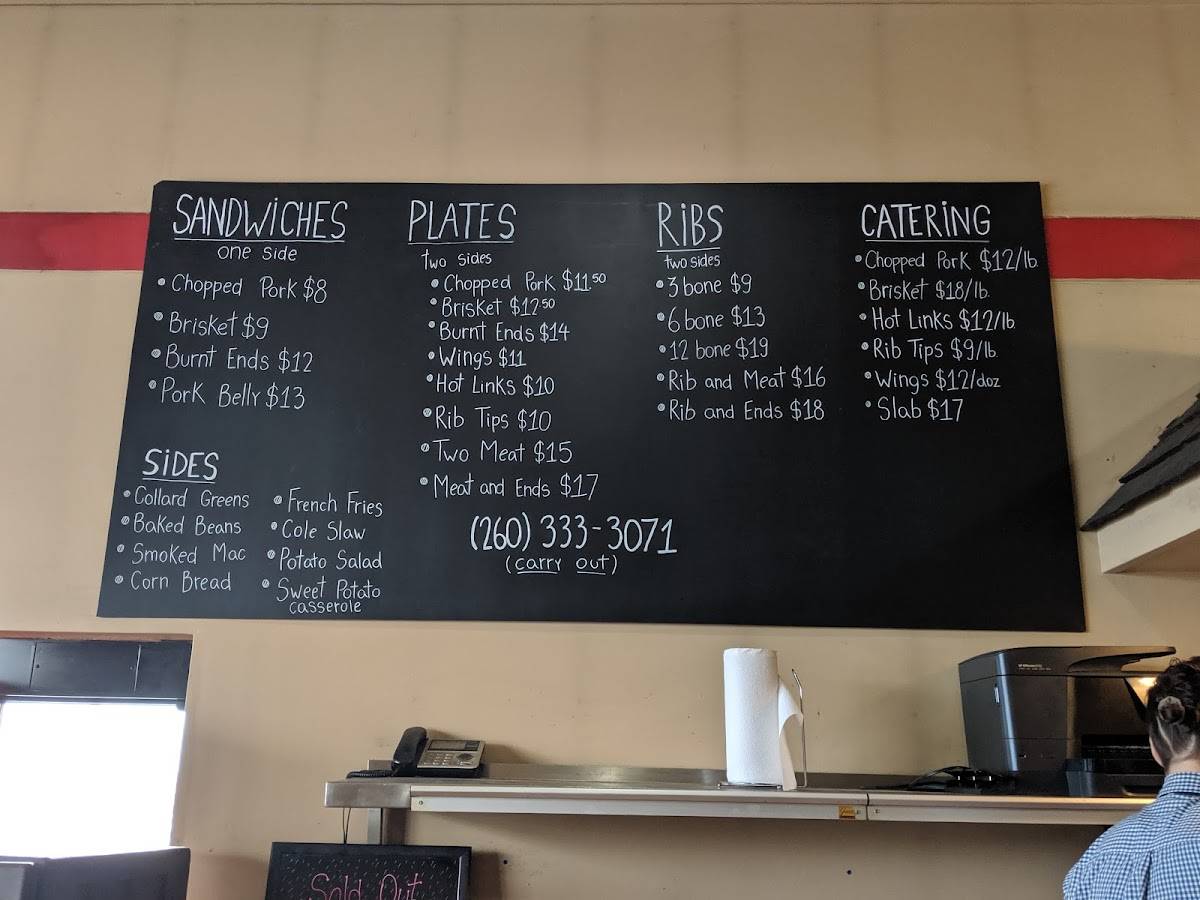 SANDWICHES
one side
• Chopped Pork $8
• Brisket $9
• Burnt Ends $12
• Pork Belly $13
SIDES
• Collard Greens
• Baked Beans
• Smoked Mac
• Corn Bread
• French Fries
• Cole Slaw
• Potato Salad
• Sweet Potato
casserole
PLATES
two sides
• Chopped Pork $11.50
• Brisket $12.50
• Burnt Ends $14
• Wings $11
• Hot Links $10
• Rib Tips $10
• Two Meat $15
• Meat and Ends $17
(260) 333-3071
(carry out)
RiBS
two sides
• 3 bone $9
• 6 bone $13
• 12 bone $19
• Rib and Meat $16
• Rib and Ends $18
CATERING
• Chopped Pork $12/lb.
• Brisket $18/lb.
• Hot Links $12/lb.
• Rib Tips $9/lb.
• Wings $12/doz
• Slab $17
Sold Out